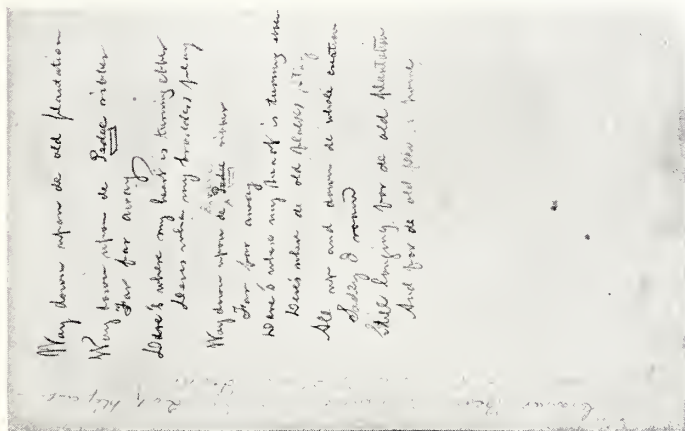 Way down upon de old plantation
Way down upon de Pedee ribber
Far far away
Dare's where my heart is turning ebber
Dares wha my brodders play
Way down upon de Pedee ribber
Far far away
Dare's where my heart is turning ebber
Dere's where de old
All up and down de whole creation
Sadly I roam
Still longing for de old plantation
And for de old home